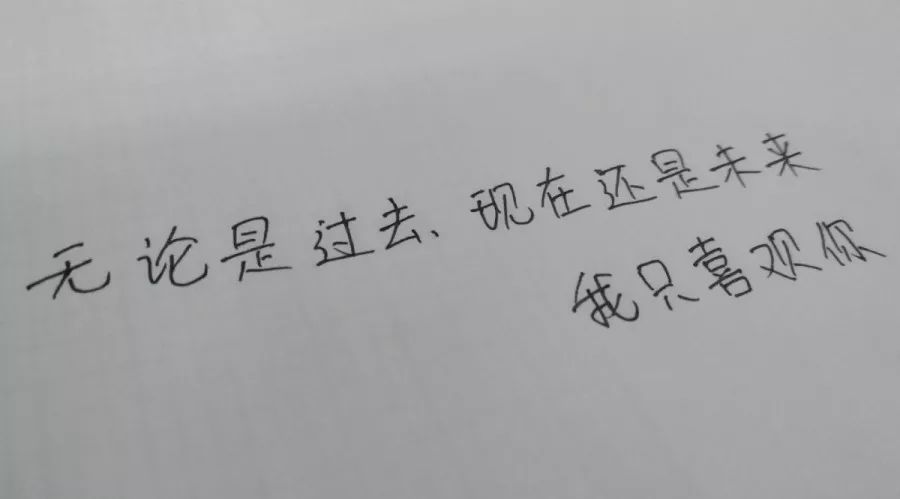 无论是过去、现在还是未来
我只喜观你